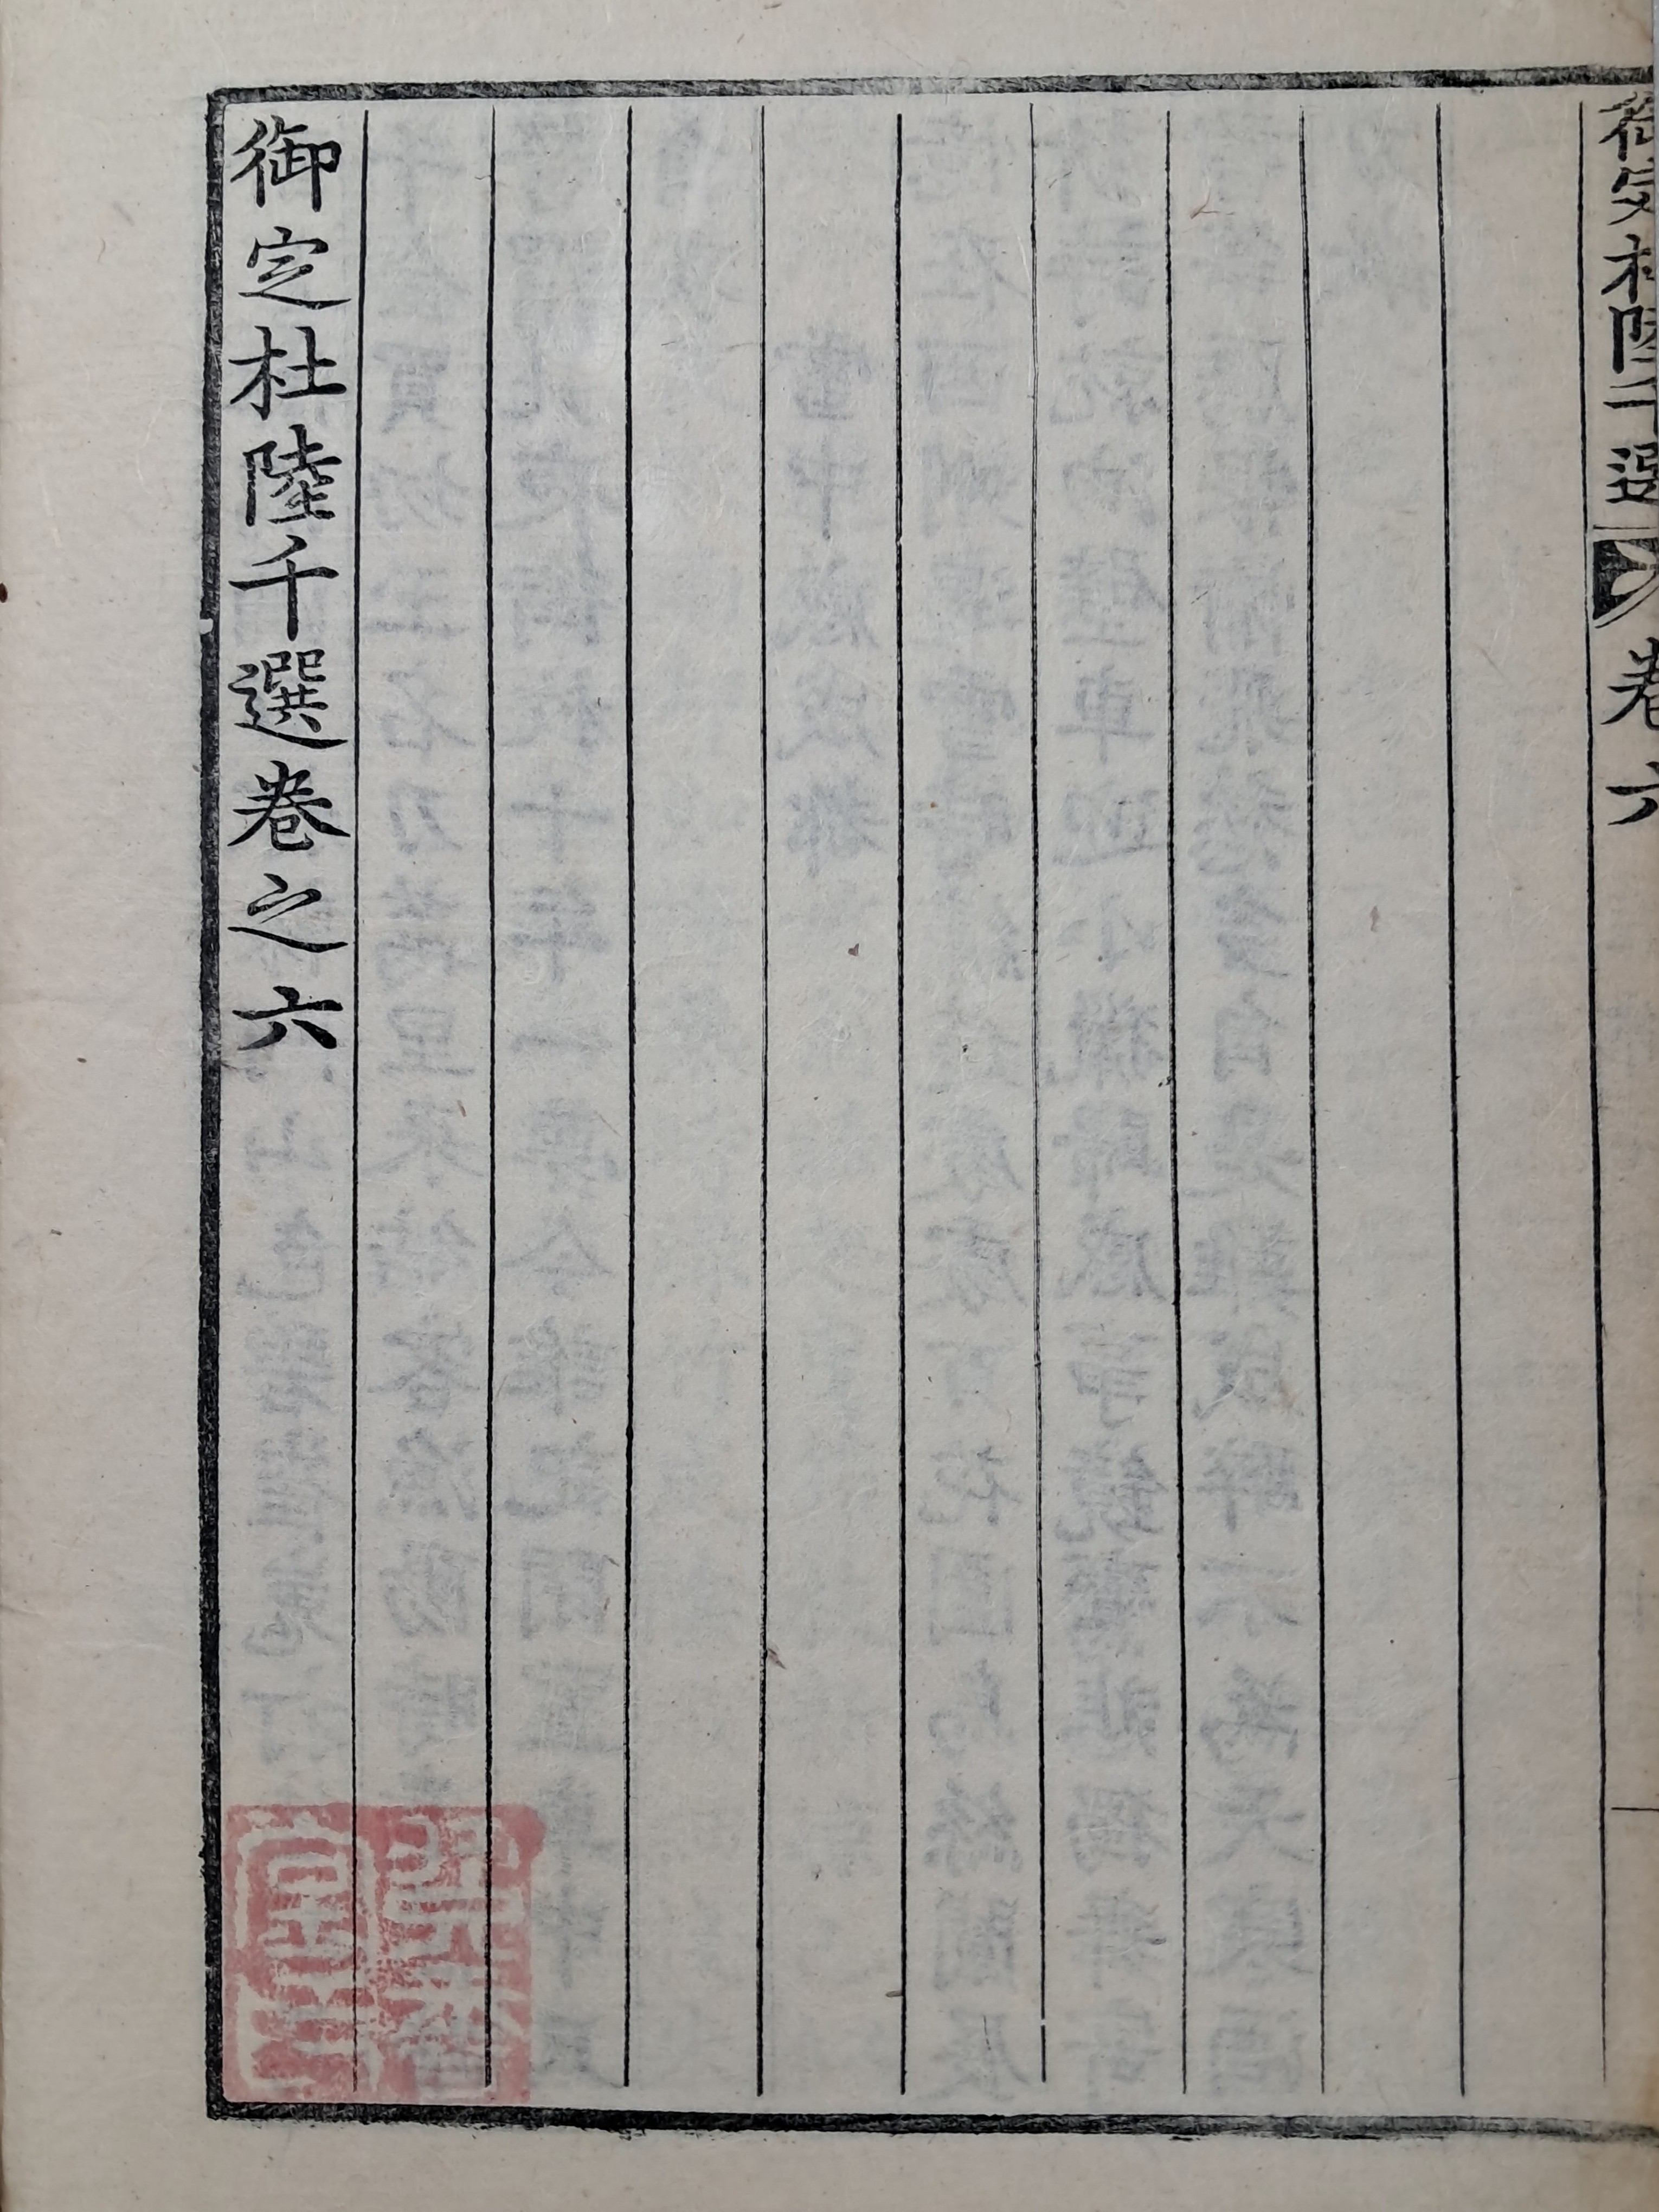 御定杜陸千選 卷六
御定杜陸千選卷之六